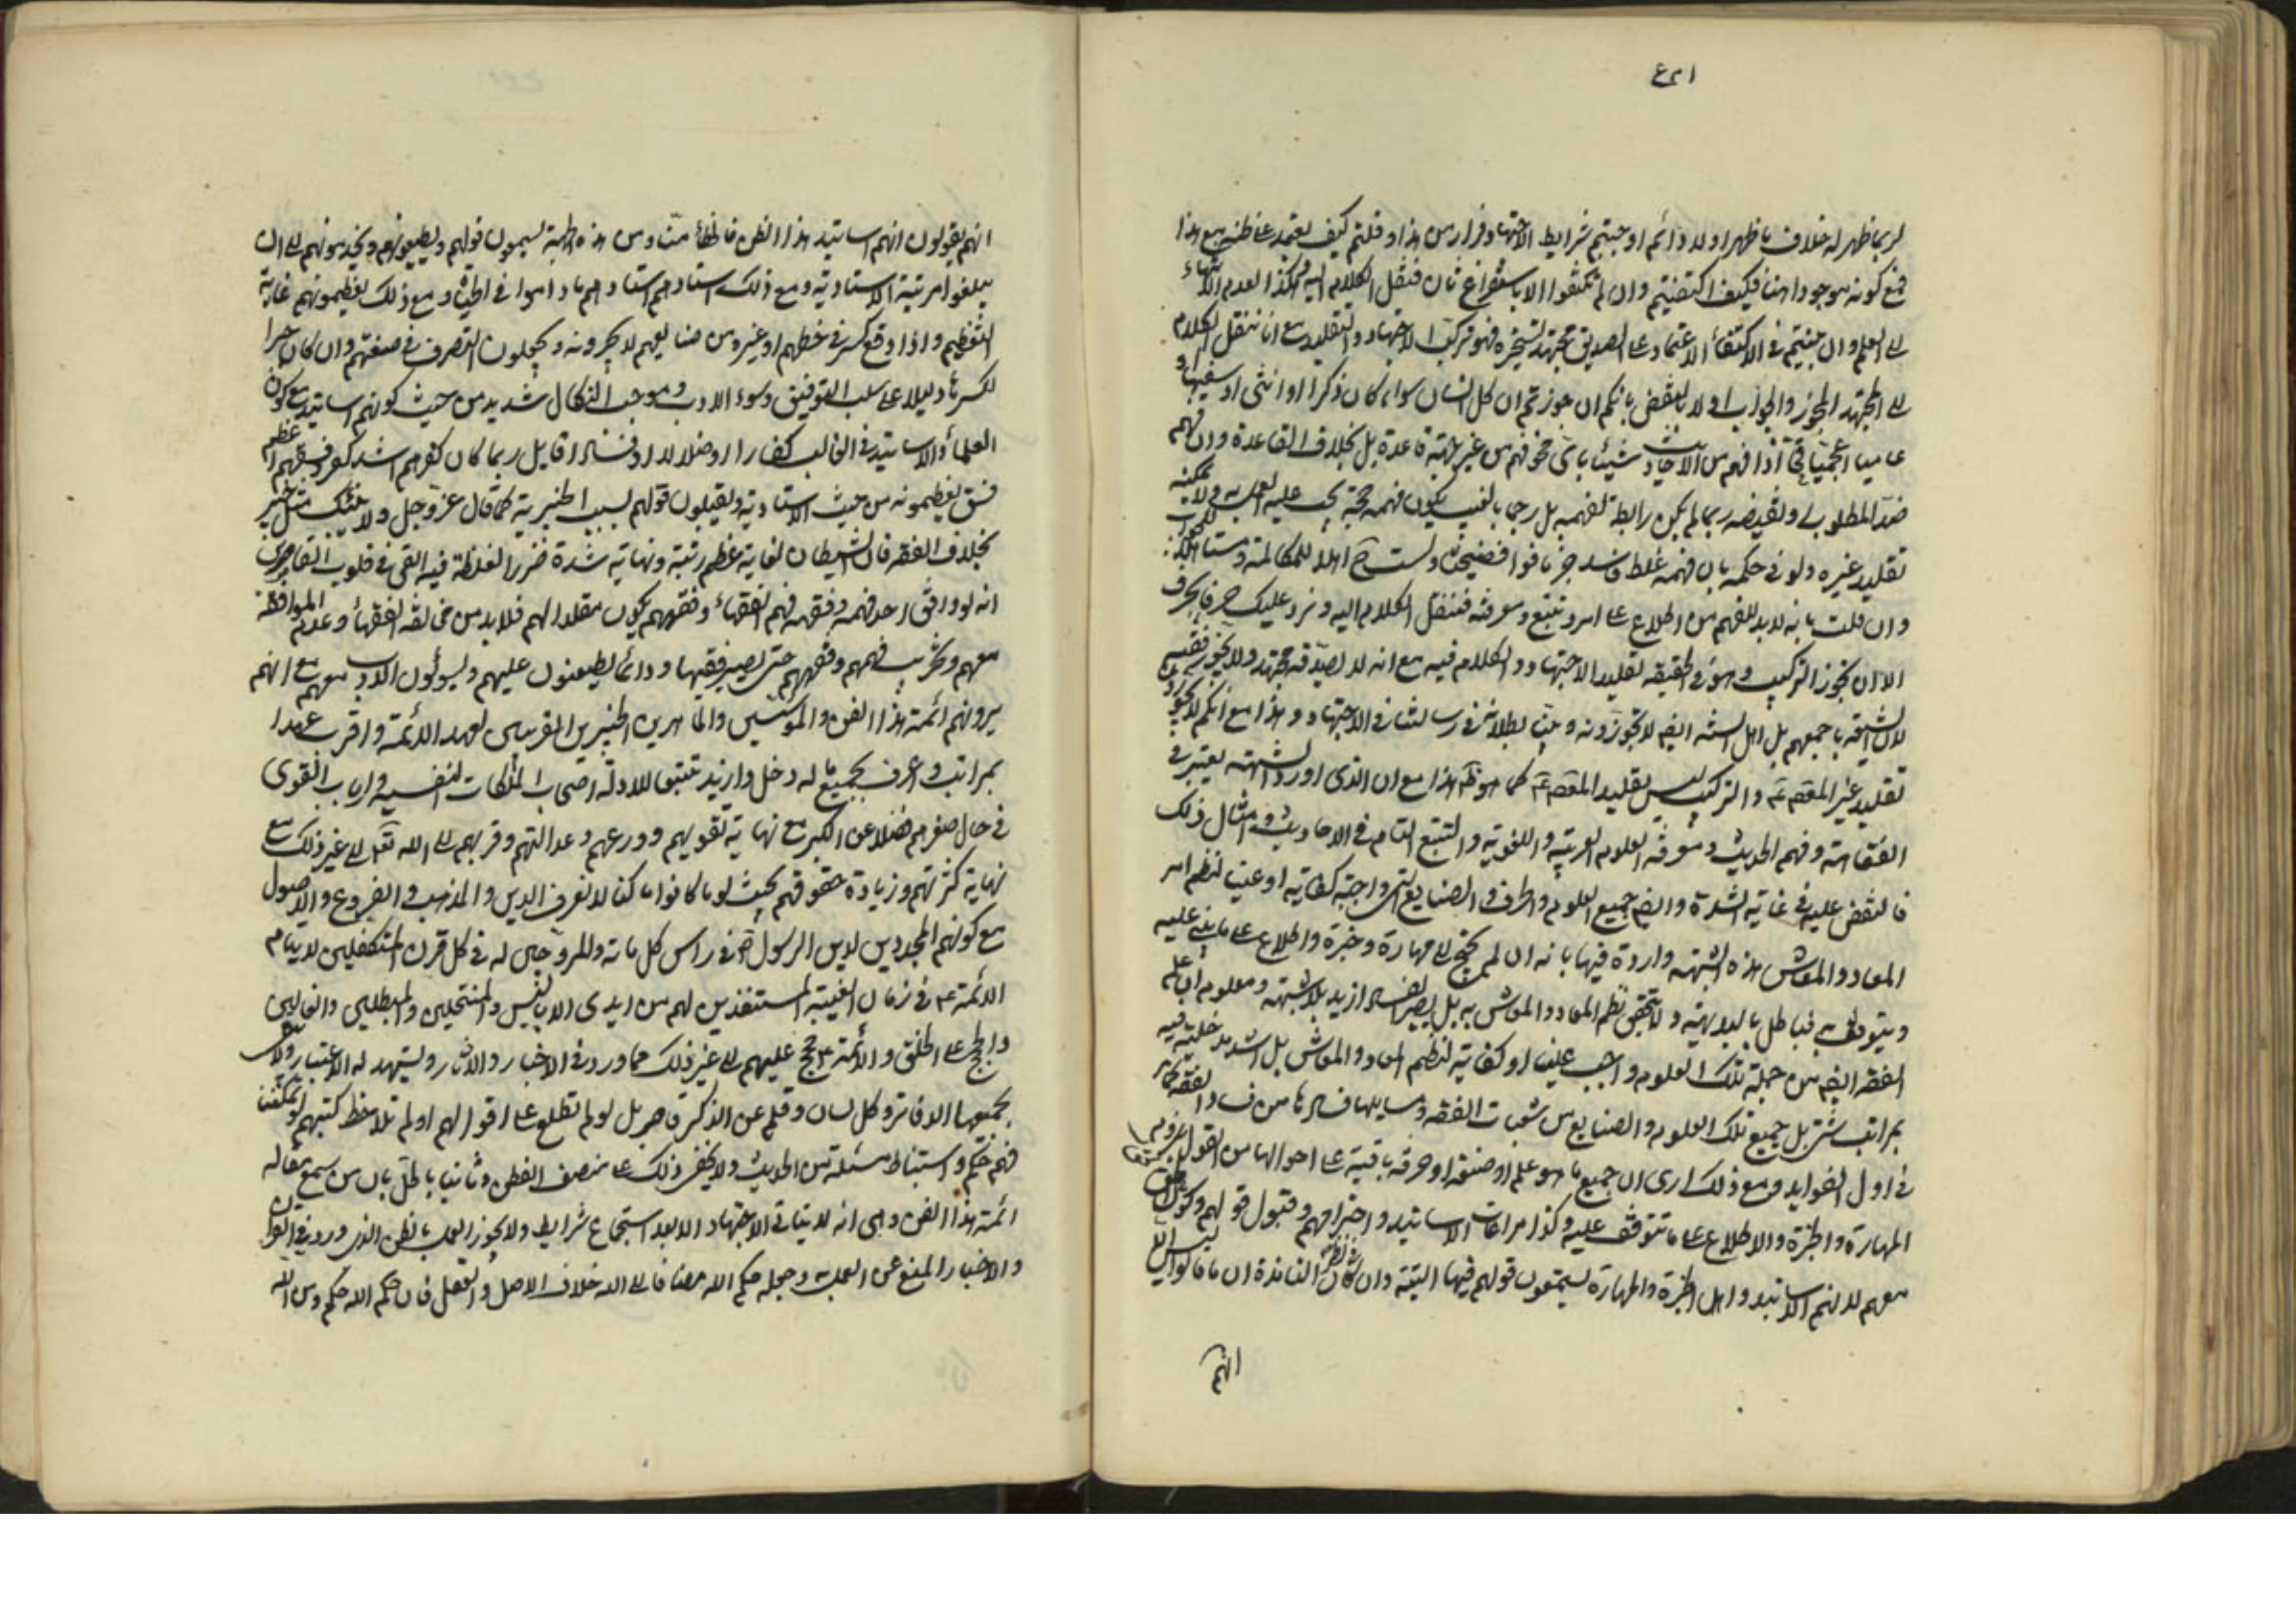 لربما ظهر له خلاف ما ظهر اولا ولذا نتم اوجبتم شرايط الاجتهاد فرارا من هذا و قلتم كيف يعتمد على ظنه مع هذا
فمع كونه موجودا هنا فكيف اكتفيتم وان لم تكتفوا الا باستفراغ ثان فننقل الكلام اليه وهكذا لعدم الانتهاء
الى العلم وان بنيتم في الاكتفاء الاعتماد على تصديق مجتهد لتبحره فهو تركيب الاجتهاد والتقليد مع انا ننقل الكلام
الى المجتهد المجوز والجواب اولا بالنقض بانكم ان جوزتم ان كل انسان سواء كان ذكرا او انثى او سفيها او
عاميا اعجميا اذا فهم من الاحاديث شيئا باى نحو فهم من غير جهة قاعدة بل بخلاف القاعدة وان فهم
ضد المطلوب او نقيضه ربما لم يكن رابطة لفهمه بل رجما بالغيب يكون فهمه حجة يجب عليه العمل به ولا يمكنه
تقليد غيره ولو في حكمه بان فهمه غلط فاسد جزما فوا فضيحتاه ولست ح اهلا للمكالمة ومستاهلا للجواب
وان قلت بانه لابد للفهم من اطلاع على امر وتتبع ومعرفة فننقل الكلام اليه ونرد عليك حرفا بحرف
الا ان تجوز التركيب وهو في الحقيقه تقليد الاجتهاد و الكلام فيه مع انه لا يصدقه مجتهد ولا يجوزه فقيه
لان الشيعة باجمعهم بل اهل السنة ايضا لا يجوزونه وبينا بطلانه في رسالتنا في الاجتهاد و هذا مع انكم لا تجوزون
تقليد غير المعصوم والتركيب ليس تقليد المعصوم كما هو ظاهر هذا مع ان الذى اورد الشبهة يعتبر في
الفقاهة وفهم الحديث ومعرفة العلوم العربية واللغوية والتتبع التام في الاحاديث وامثال ذلك
فالنقض عليه في غاية الشدة وايضا جميع العلوم والحرف والصنايع التى واجبة كفاية او عينا لنظم امر
المعاد والمعاش هذه الشبهة واردة فيها بانه ان لم يحتج الى مهارة وخبرة واطلاع على ما يبتنى عليه
ويتوقف فباطل بالبديهة ولا يتحقق نظم المعاد والمعاش به بل يصير الفساد ازيد بلا شبهة ومعلوم ان علم
الفقه ايضا من جملة تلك العلوم واجب عينا او كفاية لنظم المعاد والمعاش بل اشد مدخلية فيه
بمراتب شتى بل جميع تلك العلوم والصنايع من شعبات الفقه ومسايلها فسادها من فساد الفقه كما مر
في اول الفوايد ومع ذلك ارى ان جميع ما هو علم او صنعة او حرفة باقية على احوالها من القول بلزوم
المهارة والخبرة والاطلاع على ما تتوقف عليه وكذا مراعات الاساتيد و احترامهم وقبول قولهم وكون الحق
معهم لانهم الاساتيد واهل الخبرة والمهارة يستمعون قولهم فيها البتة وان كان في نظر التلامذة ان ما قالوا ليس كك
انهم
انهم يقولون انهم اساتيد هذا الفن فالخطأ منا ومن هذه الجهة يسمعون قولهم ويطيعونهم ويخدمونهم الى ان
يبلغوا مرتبة الاستادية ومع ذلك استادهم استادهم ما داموا في الحيوة ومع ذلك يعظمونهم غاية
التعظيم واذا وقع كسر في خطهم او غيره من صنايعهم لا يجبرونه ويجعلون التصرف في صنعتهم وان كان جبرا
لكسرها دليلا على سلب التوفيق وسوء الادب وموجب النكال شديد من حيث كونهم اساتيد مع كون
العلماء والاساتيد في الغالب كفارا او ضلالا او فساقا بل ربما كان كفرهم اشد كفر وفسقهم اعظم
فسق يعظمونه من حيث الاستادية ويقبلون قولهم بسبب الخبرية كما قال عز وجل ولا ينبئك مثل خبير
بخلاف الفقه فان الشيطان لغاية عظم رتبة ونهاية شدة ضرر الغلط فيه القى في قلوب القاصرين
انه لو وافق احد فهمه وفقهه فهم الفقهاء وفقههم يكون مقلدا لهم فلابد من مخالفة الفقهاء وعدم الموافقة
معهم وتخريب فهمهم وفقههم حتى يصير فقيها و دائما يطعنون عليهم ويسيئون الادب معهم مع انهم
يرونهم ائمة هذا الفن والمؤسسين والماهرين الخبيرين المقربين لعهد الائمة و اقرب عهدا
بمراتب و اعرف بجميع ما له دخل وازيد تتبعا للادلة اصحاب الملكات النفسية وارباب القوى
في حال صغرهم فضلا عن الكبر مع نهاية تقويهم و ورعهم وعدالتهم وقربهم الى الله تعالى الى غير ذلك مع
نهاية كثرتهم وزيادة حقوقهم بحيث لو ما كانوا ما كنا لا نعرف الدين والمذهب والفروع والاصول
مع كونهم المجددين لدين الرسول ص في راس كل مائة والمروجين له في كل قرن المتكفلين لايتام
الائمة ع في زمان الغيبة المستنقذين لهم من ايدى الابالسة والمنتحلين والمبطلين والغالين
والحجج على الخلق والائمة ع حجج عليهم الى غير ذلك مما ورد في الاخبار والاثار ويشهد له الاعتبار ولا يسع
بجميعها الدفاتر وكل لسان وقلم عن الذكر قاصر بل لو لم تطلع على اقوالهم او لم تلاحظ كتبهم لو تمكنت
فهم حكم و استنباط مسئلة من الحديث ولا يخفى ذلك على المنصف الفطن وثانيا بالحل بان من سمع مقاله
ائمة هذا الفن وهى انه لا يتاتى الاجتهاد الا بعد استجماع شرايط ولا يجوز العمل بالظن الذى ورد في القران
والاخبار المنع عن العمل به وجعله حكم الله مضافا الى انه خلاف الاصل والعقل فان حكم الله حكم ومن الله